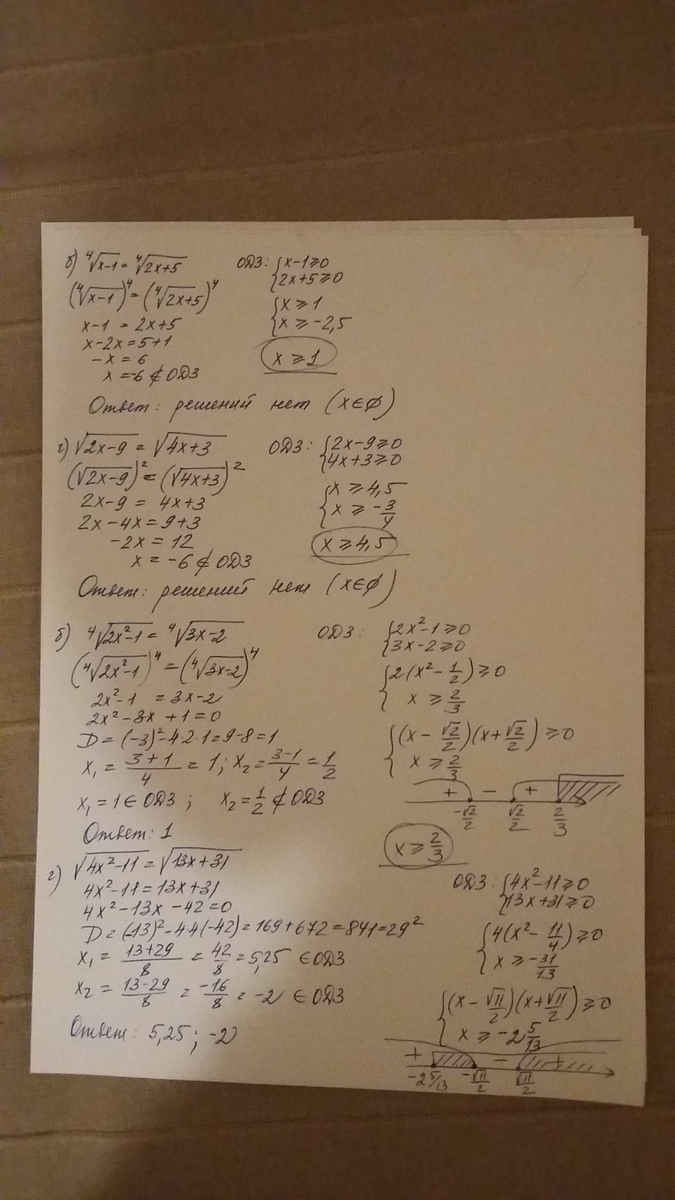 б) ⁴√(x-1) = ⁴√(2x+5)
(⁴√(x-1))⁴ = (⁴√(2x+5))⁴
x-1 = 2x+5
x-2x = 5+1
-x = 6
x = -6 ∉ ОДЗ
ОДЗ: { x-1 ≥ 0
2x+5 ≥ 0
{ x ≥ 1
x ≥ -2,5
x ≥ 1
Ответ: решений нет (x∈∅)
г) √(2x-9) = √(4x+3)
(√(2x-9))² = (√(4x+3))²
2x-9 = 4x+3
2x-4x = 9+3
-2x = 12
x = -6 ∉ ОДЗ
ОДЗ: { 2x-9 ≥ 0
4x+3 ≥ 0
{ x ≥ 4,5
x ≥ -3/4
x ≥ 4,5
Ответ: решений нет (x∈∅)
б) ⁴√(2x²-1) = ⁴√(3x-2)
(⁴√(2x²-1))⁴ = (⁴√(3x-2))⁴
2x²-1 = 3x-2
2x²-3x+1=0
D = (-3)²-4·2·1 = 9-8 = 1
x₁ = (3+1)/4 = 1; x₂ = (3-1)/4 = 1/2
x₁ = 1 ∈ ОДЗ; x₂ = 1/2 ∉ ОДЗ
Ответ: 1
ОДЗ: { 2x²-1 ≥ 0
3x-2 ≥ 0
{ 2(x²-1/2) ≥ 0
x ≥ 2/3
{ (x-√2/2)(x+√2/2) ≥ 0
x ≥ 2/3
+ - +
-√2/2 √2/2 2/3
x ≥ 2/3
г) √(4x²-11) = √(13x+31)
4x²-11 = 13x+31
4x²-13x-42=0
D = (-13)²-4·4(-42) = 169+672 = 841 = 29²
x₁ = (13+29)/8 = 42/8 = 5,25 ∈ ОДЗ
x₂ = (13-29)/8 = -16/8 = -2 ∈ ОДЗ
Ответ: 5,25; -2
ОДЗ: { 4x²-11 ≥ 0
13x+31 ≥ 0
{ 4(x²-11/4) ≥ 0
x ≥ -31/13
{ (x-√11/2)(x+√11/2) ≥ 0
x ≥ -2 5/13
+ - +
-2 5/13 -√11/2 √11/2